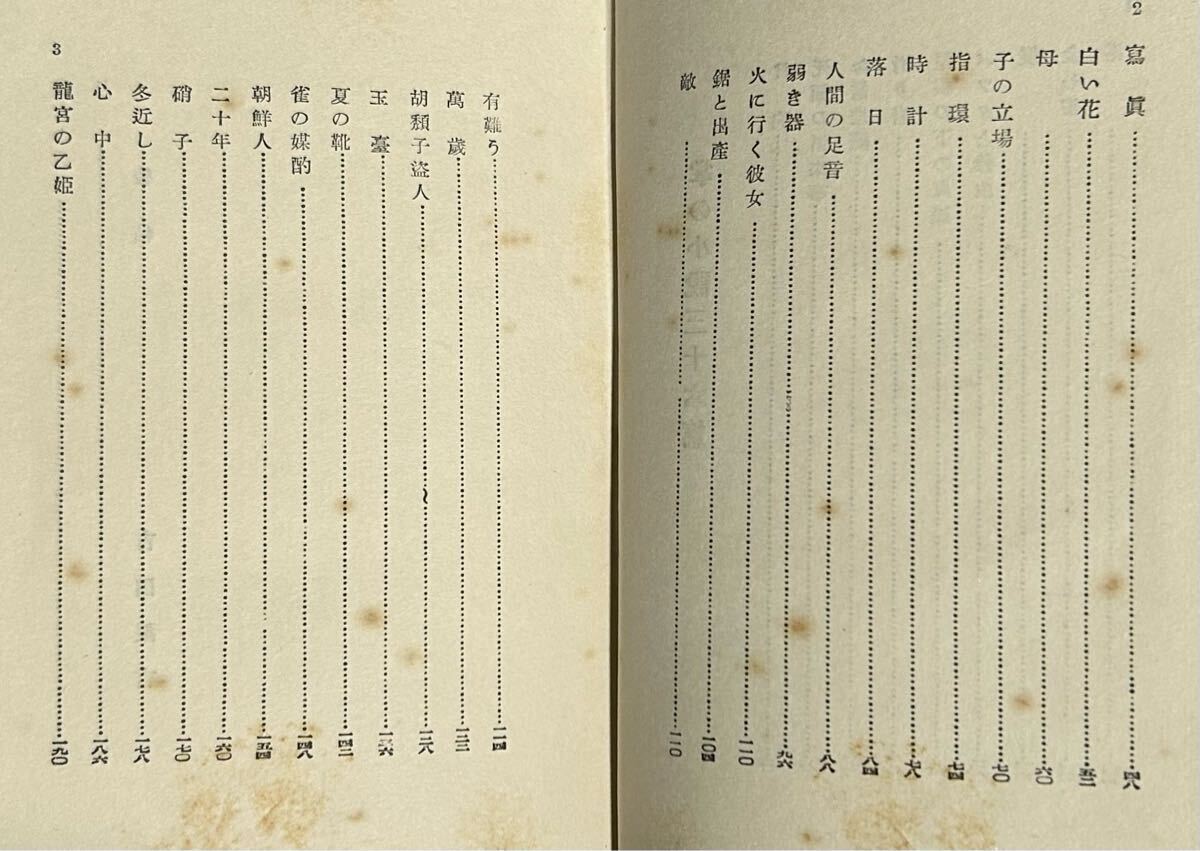 2
寫眞……四八
白い花……五二
母……六〇
子の立場……七〇
指環……七四
時計……
落日……八四
人間の足音……八八
弱き器……九六
火に行く彼女……
鋸と出產……一〇四
敵……一一〇
有難う……一一四
萬歲……
胡頽子盜人……一二八
玉臺……一三六
夏の靴……一四二
雀の媒酌……一四八
朝鮮人……一五四
二十年……一六〇
硝子……一七〇
冬近し……一七八
心中……一八六
龍宮の乙姬……一九〇
3